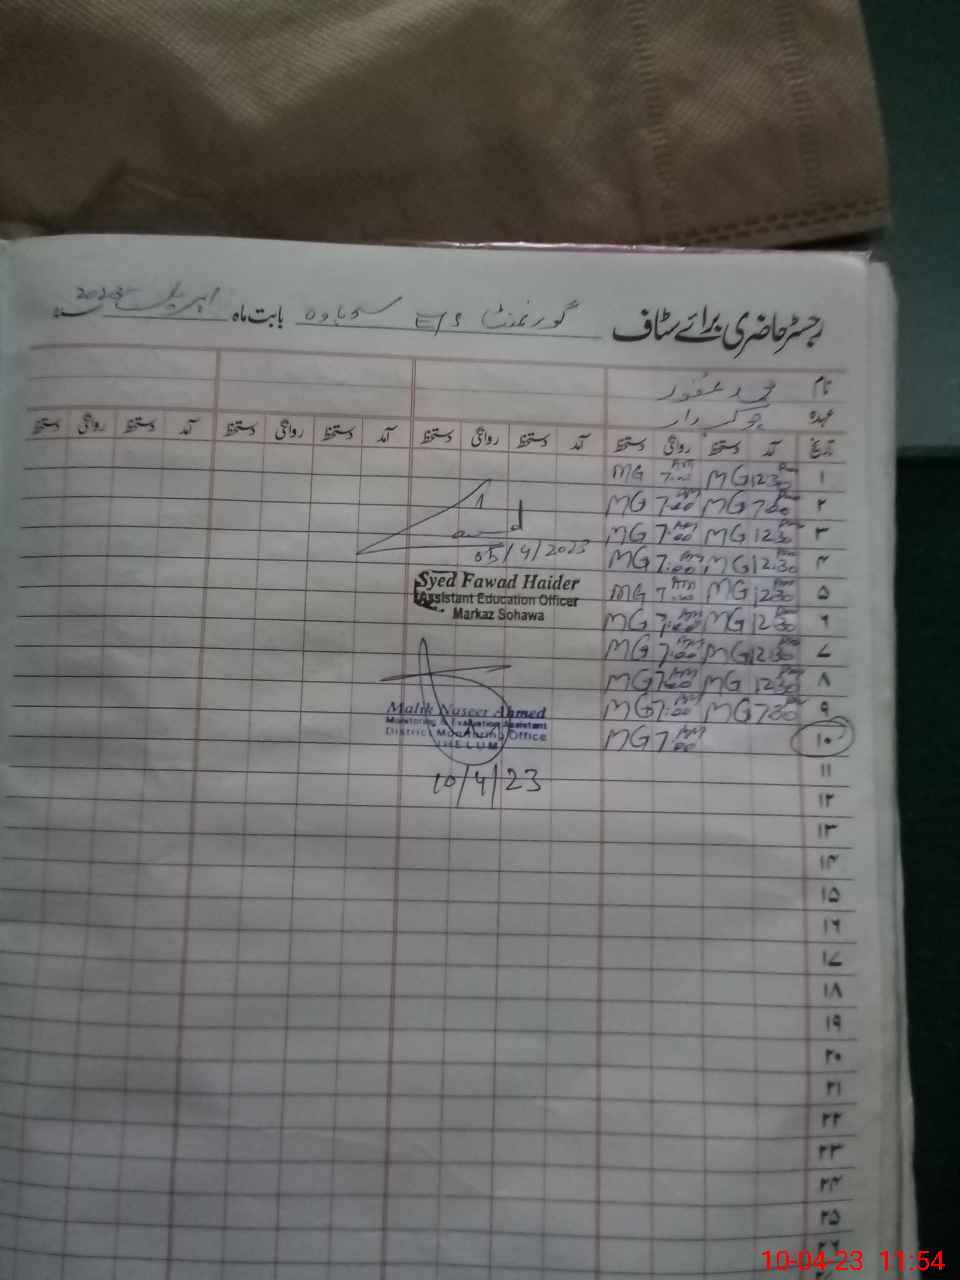 رجسٹر حاضری برائے سٹاف گورنمنٹ E/S سوہاوہ بابت ماہ اپریل 2023 سنہ
نام محمد غفور
عہدہ چوکیدار
تاریخ آمد دستخط روانگی دستخط آمد دستخط روانگی دستخط آمد دستخط روانگی دستخط آمد دستخط روانگی دستخط
۱ 12:30 PM MG 7:00 AM MG
۲ 7:00 PM MG 7:00 AM MG
۳ 12:30 PM MG 7:00 AM MG
۴ 12:30 MG 7:00 AM MG
۵ 12:30 PM MG 7:00 AM MG
۶ 12:30 PM MG 7:00 AM MG
۷ 12:30 PM MG 7:00 AM MG
۸ 12:30 PM MG 7:00 AM MG
۹ 7:30 PM MG 7:00 AM MG
۱۰ 7:00 AM MG
05/4/2023
Syed Fawad Haider
Assistant Education Officer
Markaz Sohawa
Malik Naseer Ahmed
Monitoring & Evaluation Assistant
District Monitoring Office
JHELUM
10/4/23
۱۱
۱۲
۱۳
۱۴
۱۵
۱۶
۱۷
۱۸
۱۹
۲۰
۲۱
۲۲
۲۳
۲۴
۲۵
۲۶
10-04-23 11:54